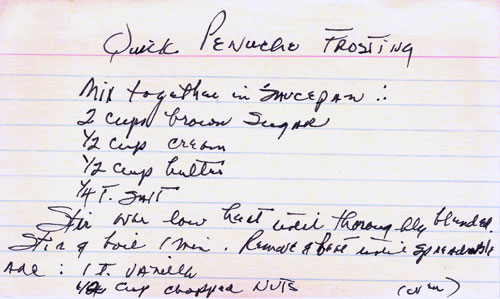 Quick Penuche Frosting
Mix together in saucepan :
2 cups brown sugar
1/2 cup cream
1/2 cup butter
1/4 T. salt
Stir over low heat until thoroughly blended.
Stir & boil 1 min. Remove & beat until spreadable
Add : 1 T. vanilla
cup chopped nuts